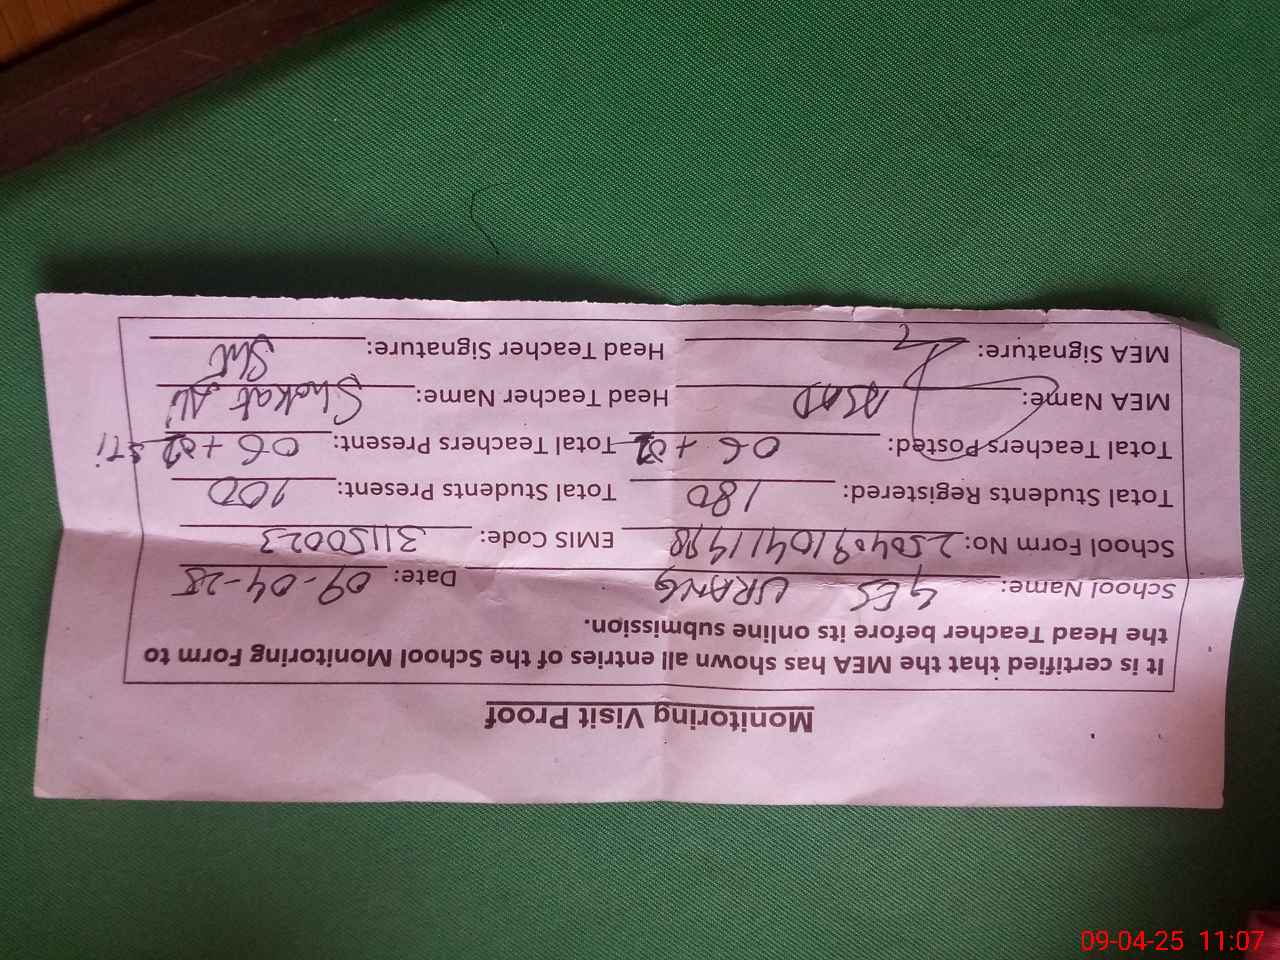 Monitoring Visit Proof
It is certified that the MEA has shown all entries of the School Monitoring Form to
the Head Teacher before its online submission.
School Name: GES URANG Date: 09-04-25
School Form No: 250409104111498 EMIS Code: 31150023
Total Students Registered: 180 Total Students Present: 100
Total Teachers Posted: 06 + 02 Total Teachers Present: 06 + 02 STi
MEA Name: ASAD Head Teacher Name: Shokat Ali
MEA Signature: Head Teacher Signature:
09-04-25 11:07